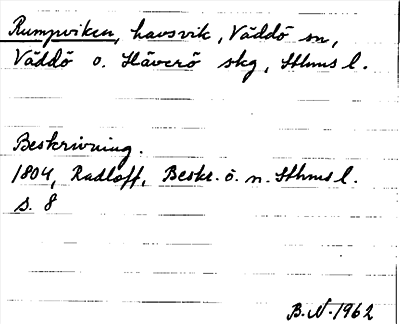 Rumpviken, havsvik, Väddö sn,
Väddö o. Häverö skg, Sthms l.
Beskrivning.
1804, Radloff, Beskr. ö. n. Sthms l.
s. 8
B.N. 1962